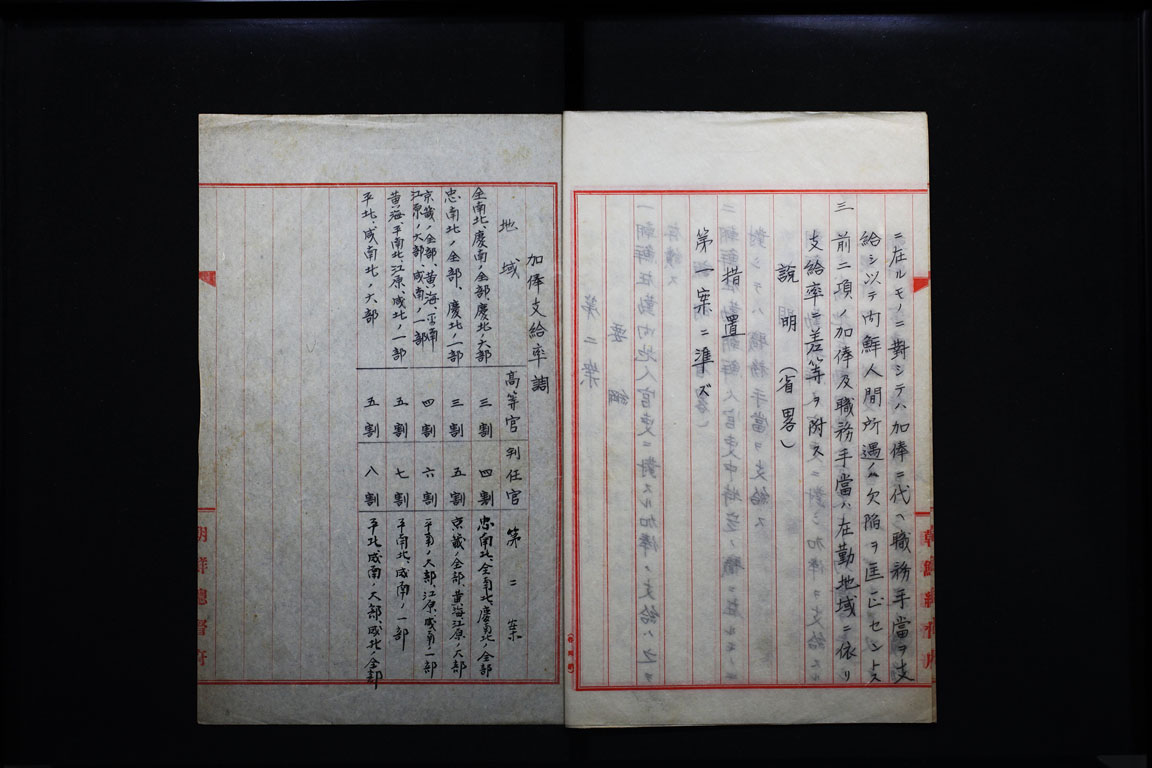 ニ在ルモノニ對シテハ加俸ニ代ヘ職務手當ヲ支
給シ以テ内鮮人間所遇ノ欠陥ヲ匡正セントス
三 前二項ノ加俸及職務手當ハ在勤地域ニ依リ
支給率ニ差等ヲ附ス
說明（省畧）
措置
第一案ニ準ズ
加俸支給率調
地域 高等官 判任官 第二案
全南北、慶南ノ全部、慶北ノ大部 三割 四割 忠南北、全南北、慶南北ノ全部
忠南北ノ全部、慶北ノ一部 三割 五割 京畿ノ全部、黄海江原ノ大部
京畿ノ全部、黄海、平南 江原ノ大部、咸南ノ一部 四割 六割 平南ノ大部、江原、咸南ノ一部
黄海、平南北、江原、咸北ノ一部 五割 七割 平南北、咸南ノ一部
平北、咸南北ノ大部 五割 八割 平北咸南ノ大部、咸北ノ全部
朝鮮總督府